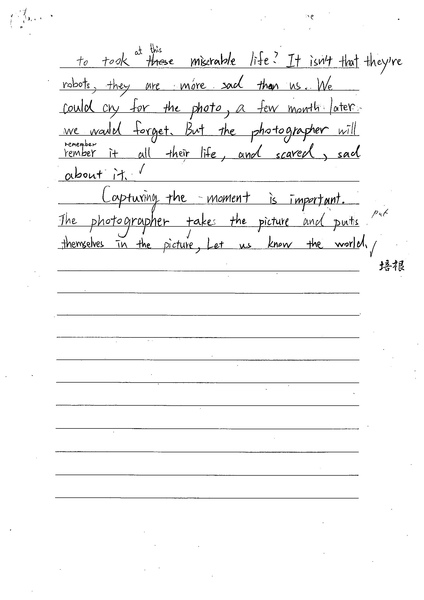 at this
to took these miserable life? It isn't that they're
robots, they are more sad than us. We
could cry for the photo, a few month later
we would forget. But the photographer will
remember
rember it all their life, and scared, sad
about it.
Capturing the moment is important.
The photographer takes the picture and puts
put
themselves in the picture, Let us know the world.
培根